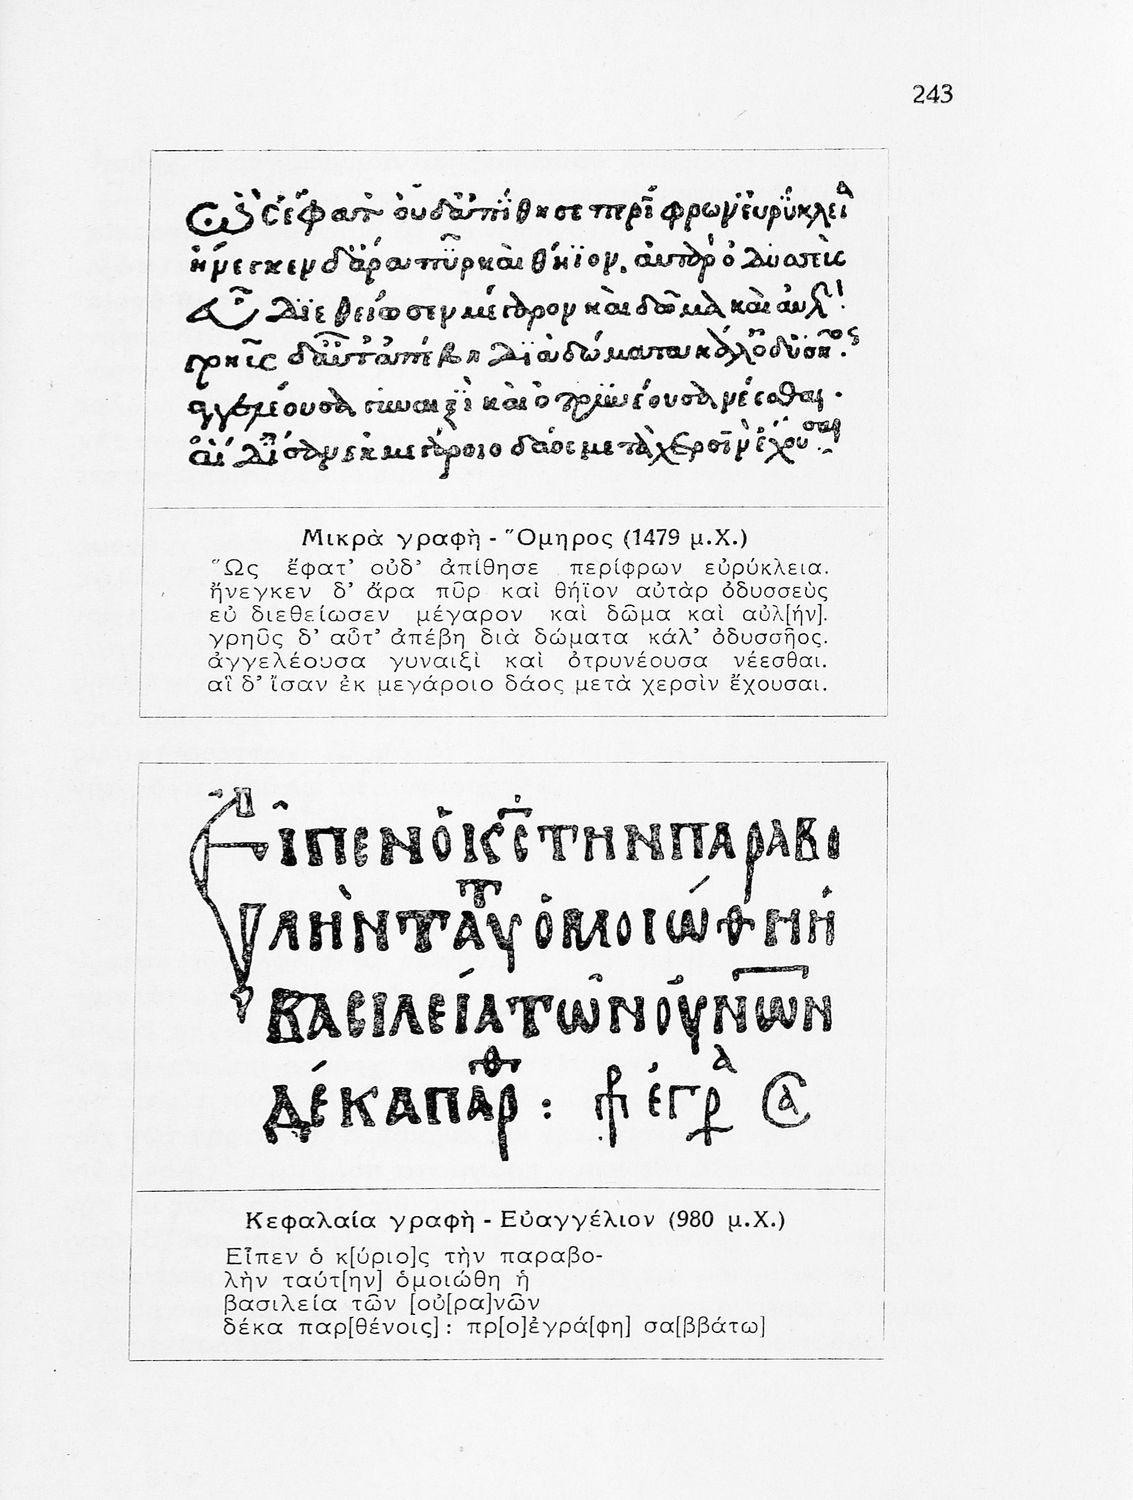 243
Ὣς ἔφατ' οὐδ' ἀπίθησε περίφρων εὐρύκλεια
ἤνεγκεν δ' ἄρα πῦρ καὶ θήϊον. αὐτὰρ ὀδυσσεὺς
εὖ διεθείωσεν μέγαρον καὶ δῶμα καὶ αὐλ
γρηῢς δ' αὖτ' ἀπέβη διὰ δώματα κάλ' ὀδυσῆος.
ἀγγελέουσα γυναιξὶ καὶ ὀτρυνέουσα νέεσθαι.
αἳ δ' ἴσαν ἐκ μεγάροιο δάος μετὰ χερσὶν ἔχουσαι.
Μικρὰ γραφὴ - Ὅμηρος (1479 μ.Χ.)
Ὣς ἔφατ' οὐδ' ἀπίθησε περίφρων εὐρύκλεια.
ἤνεγκεν δ' ἄρα πῦρ καὶ θήϊον αὐτὰρ ὀδυσσεὺς
εὐ διεθείωσεν μέγαρον καὶ δῶμα καὶ αὐλ[ήν].
γρηῢς δ' αὖτ' ἀπέβη διὰ δώματα κάλ' ὀδυσσῆος.
ἀγγελέουσα γυναιξὶ καὶ ὀτρυνέουσα νέεσθαι.
αἳ δ' ἴσαν ἐκ μεγάροιο δάος μετὰ χερσὶν ἔχουσαι.
ΕἶΠΕΝ Ὁ ΚϹ ΤΗΝ ΠΑΡΑΒΟ
ΛῊΝ ΤΑΥΤ ὉΜΟΙΏΘΗ Ἡ
ΒΑϹΙΛΕΊΑ ΤῶΝ ΟΥΝῶΝ
ΔΈΚΑ ΠΑΡΘ :
Κεφαλαία γραφὴ - Εὐαγγέλιον (980 μ.Χ.)
Εἶπεν ὁ κ[ύριο]ς τὴν παραβο-
λὴν ταύτ[ην] ὁμοιώθη ἡ
βασιλεία τῶν [οὐ[ρα]νῶν
δέκα παρ[θένοις] : πρ[ο]ἐγρά[φη] σα[ββάτω]